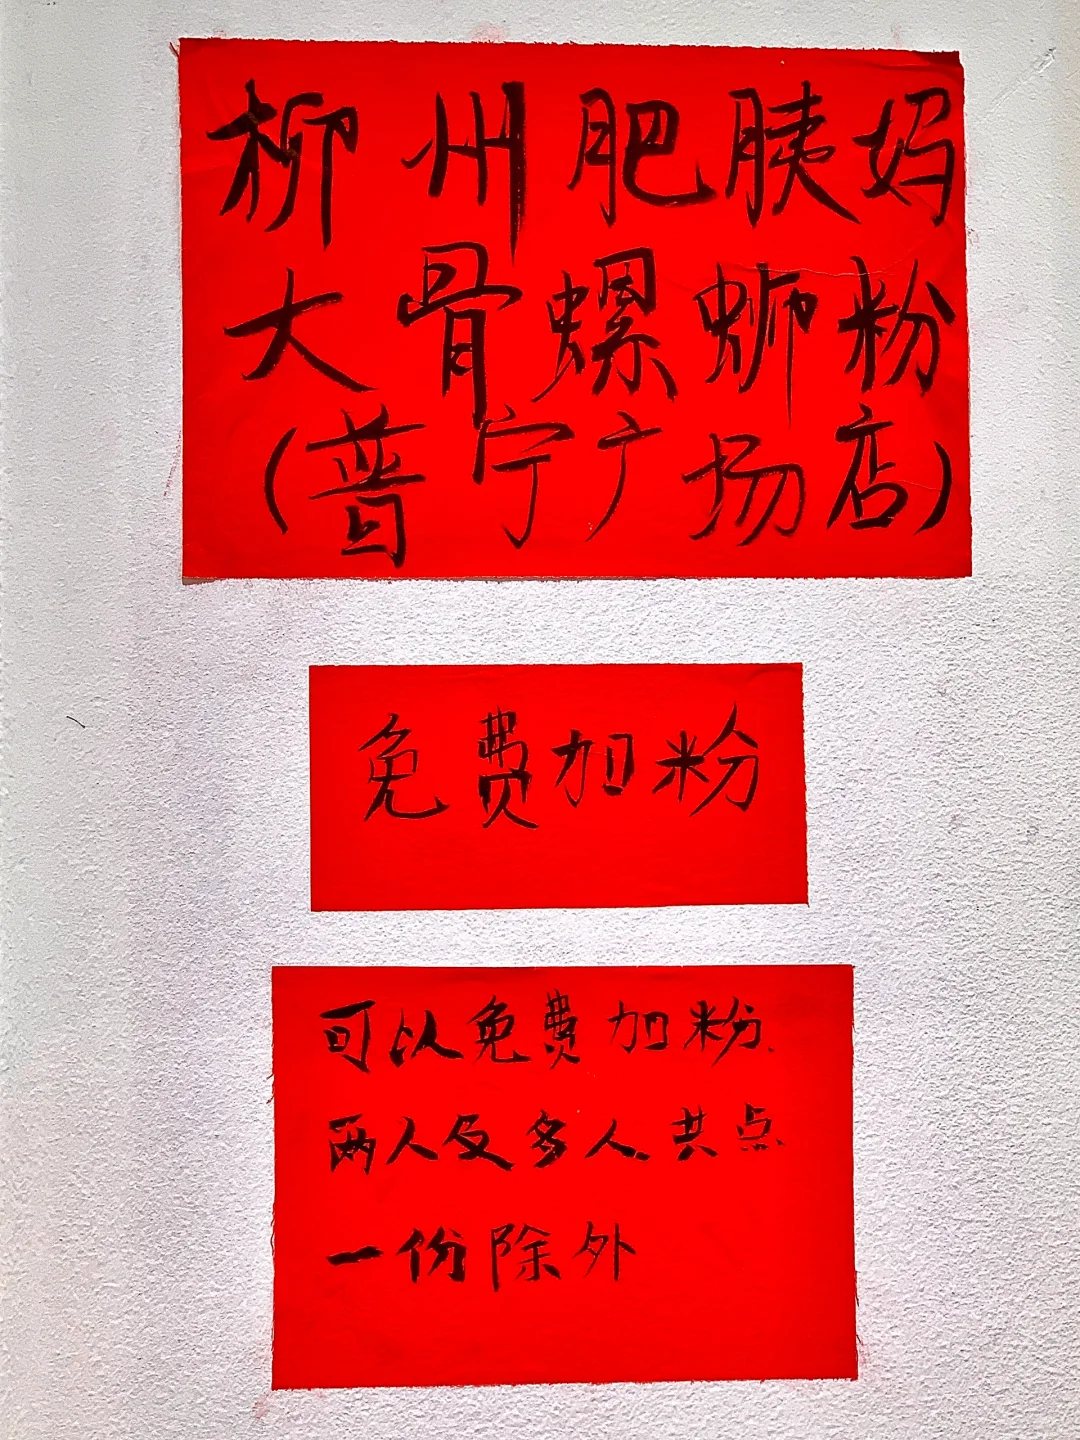 柳州肥胰妈
大骨螺蛳粉
(普宁广场店)
免费加粉
可以免费加粉.
两人及多人共点
一份除外